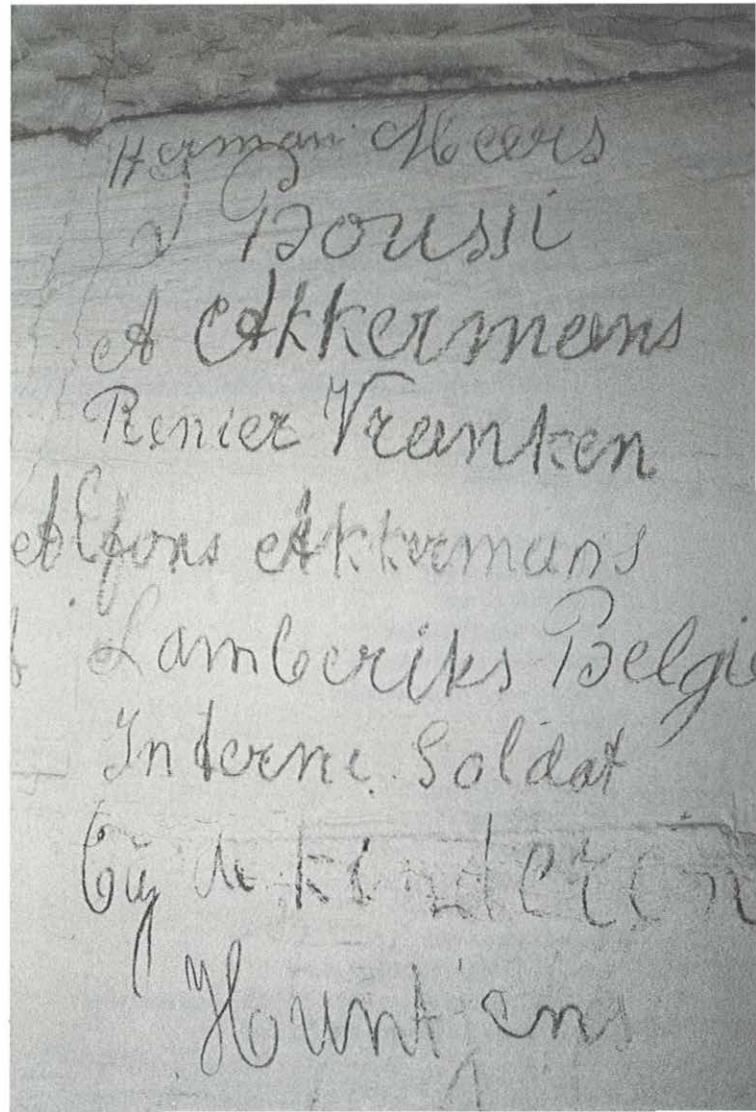 Herman Meers
J Boussi
A Akkermans
Renier Vranken
Alfons Akkermans
Lamberiks Belgie
Interne Soldat
bij de kinderen
Hountjens